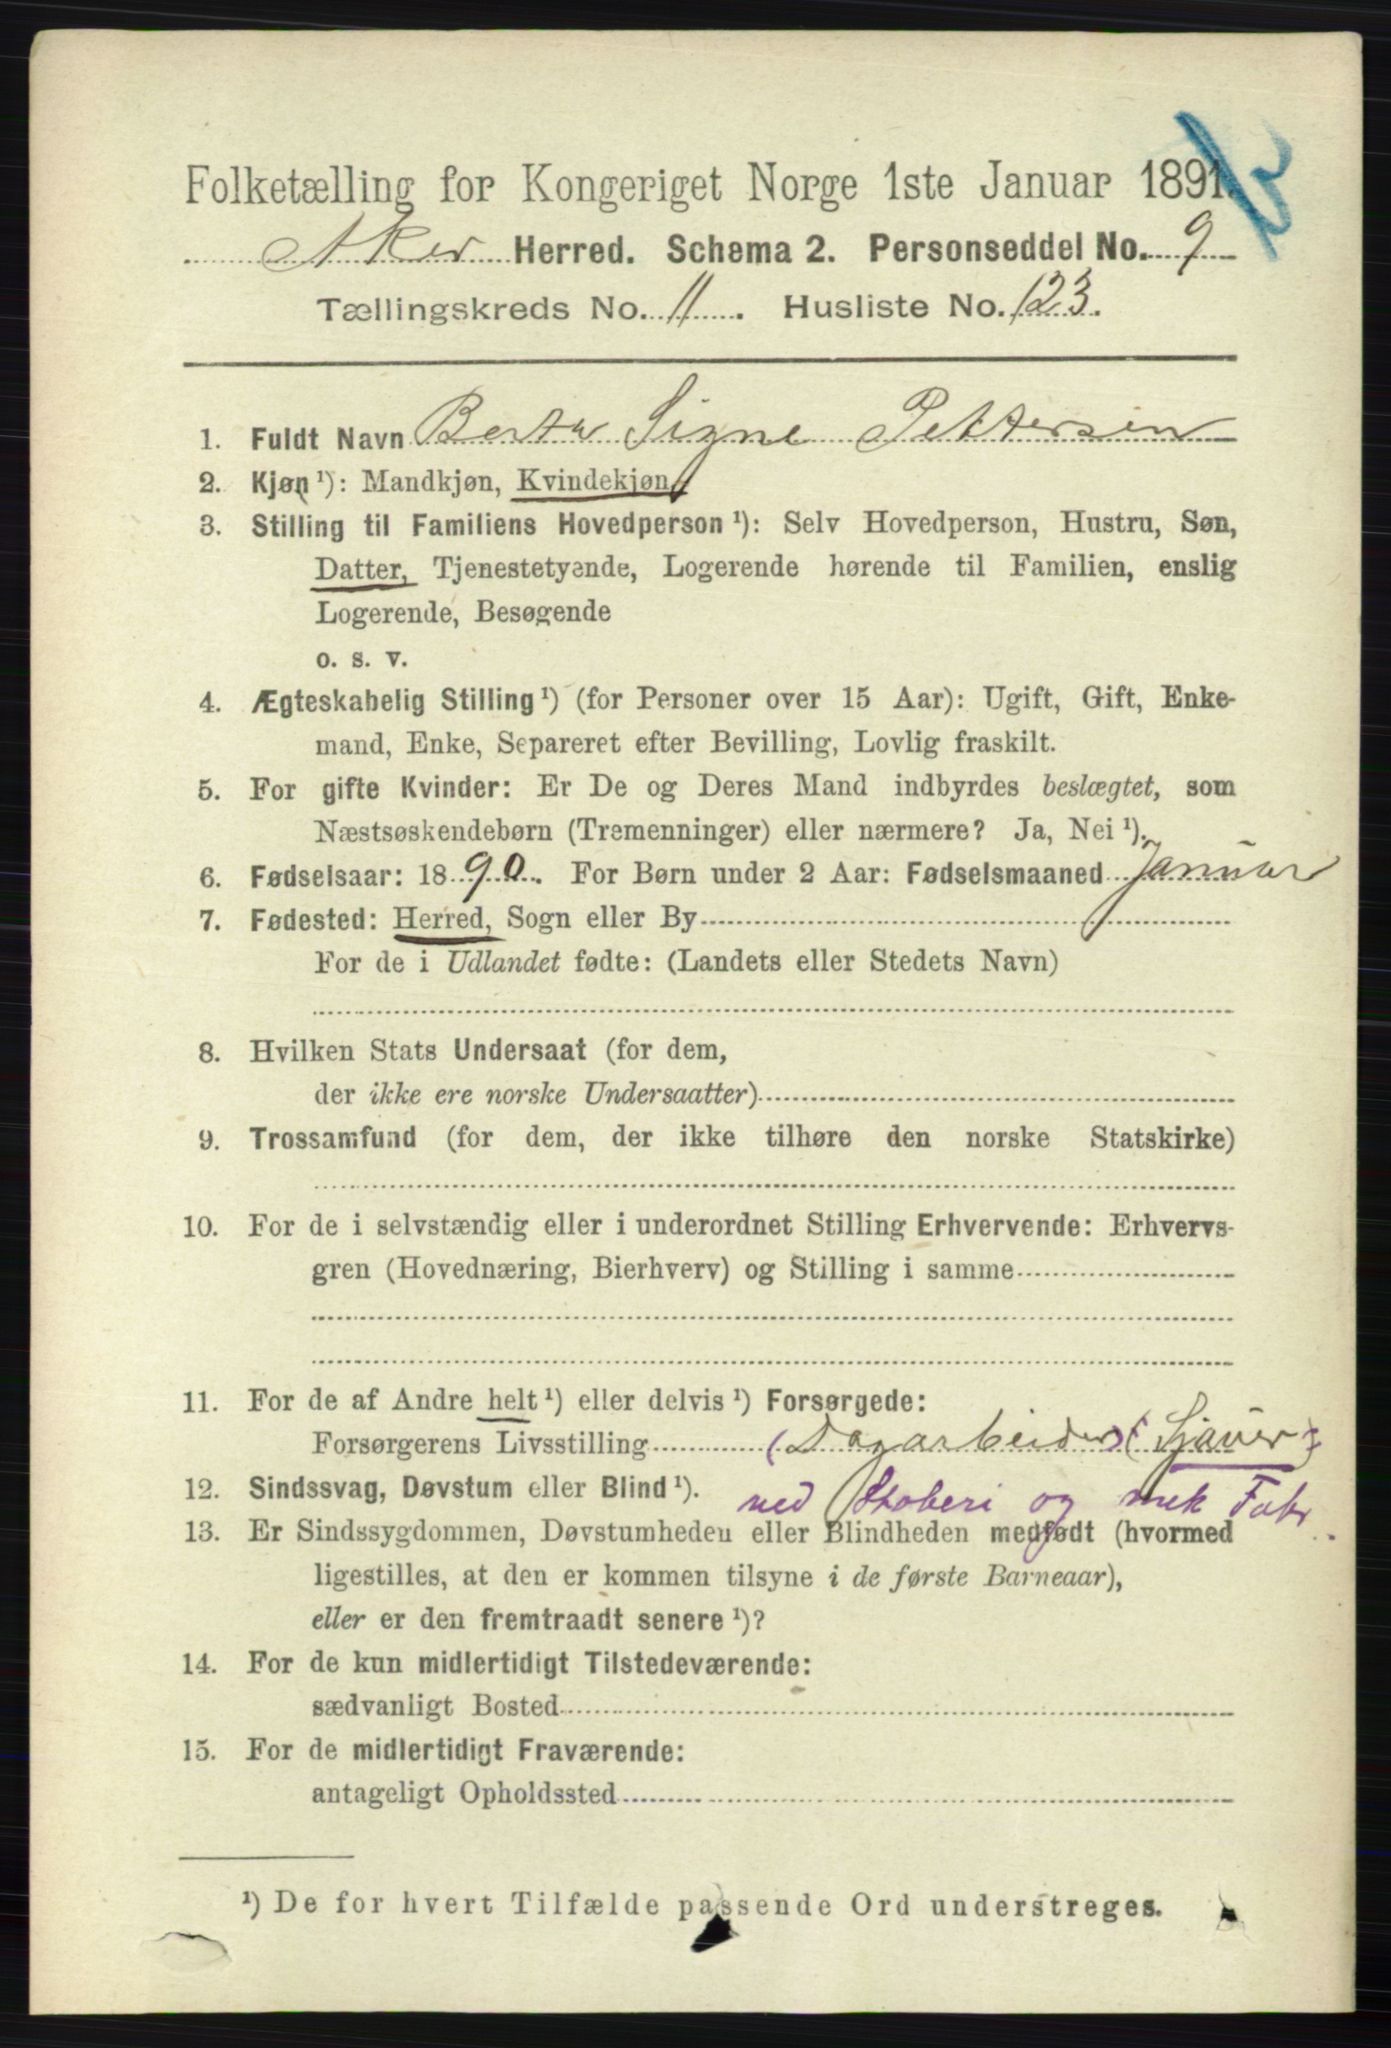 Folketælling for Kongeriget Norge 1ste Januar 1891.
Aker Herred. Schema 2. Personseddel No. 9
Tællingskreds No. 11. Husliste No. 123.
1. Fuldt Navn Berta Signe Pettersen
2. Kjøn ¹): Mandkjøn, Kvindekjøn
3. Stilling til Familiens Hovedperson ¹): Selv Hovedperson, Hustru, Søn,
Datter, Tjenestetyende, Logerende hørende til Familien, enslig
Logerende, Besøgende
o. s. v.
4. Ægteskabelig Stilling ¹) (for Personer over 15 Aar): Ugift, Gift, Enke-
mand, Enke, Separeret efter Bevilling, Lovlig fraskilt.
5. For gifte Kvinder: Er De og Deres Mand indbyrdes beslægtet, som
Næstsøskendebørn (Tremenninger) eller nærmere? Ja, Nei ¹).
6. Fødselsaar: 1890. For Børn under 2 Aar: Fødselsmaaned Januar
7. Fødested: Herred, Sogn eller By
For de i Udlandet fødte: (Landets eller Stedets Navn)
8. Hvilken Stats Undersaat (for dem,
der ikke ere norske Undersaatter)
9. Trossamfund (for dem, der ikke tilhøre den norske Statskirke)
10. For de i selvstændig eller i underordnet Stilling Erhvervende: Erhvervs-
gren (Hovednæring, Bierhverv) og Stilling i samme
11. For de af Andre helt ¹) eller delvis ¹) Forsørgede:
Forsørgerens Livsstilling (Dagarbeider) (Sjauer)
12. Sindssvag, Døvstum eller Blind ¹).
ved Støberi og mek Fabr.
13. Er Sindssygdommen, Døvstumheden eller Blindheden medfødt (hvormed
ligestilles, at den er kommen tilsyne i de første Barneaar),
eller er den fremtraadt senere ¹)?
14. For de kun midlertidigt Tilstedeværende:
sædvanligt Bosted
15. For de midlertidigt Fraværende:
antageligt Opholdssted
¹) De for hvert Tilfælde passende Ord understreges.